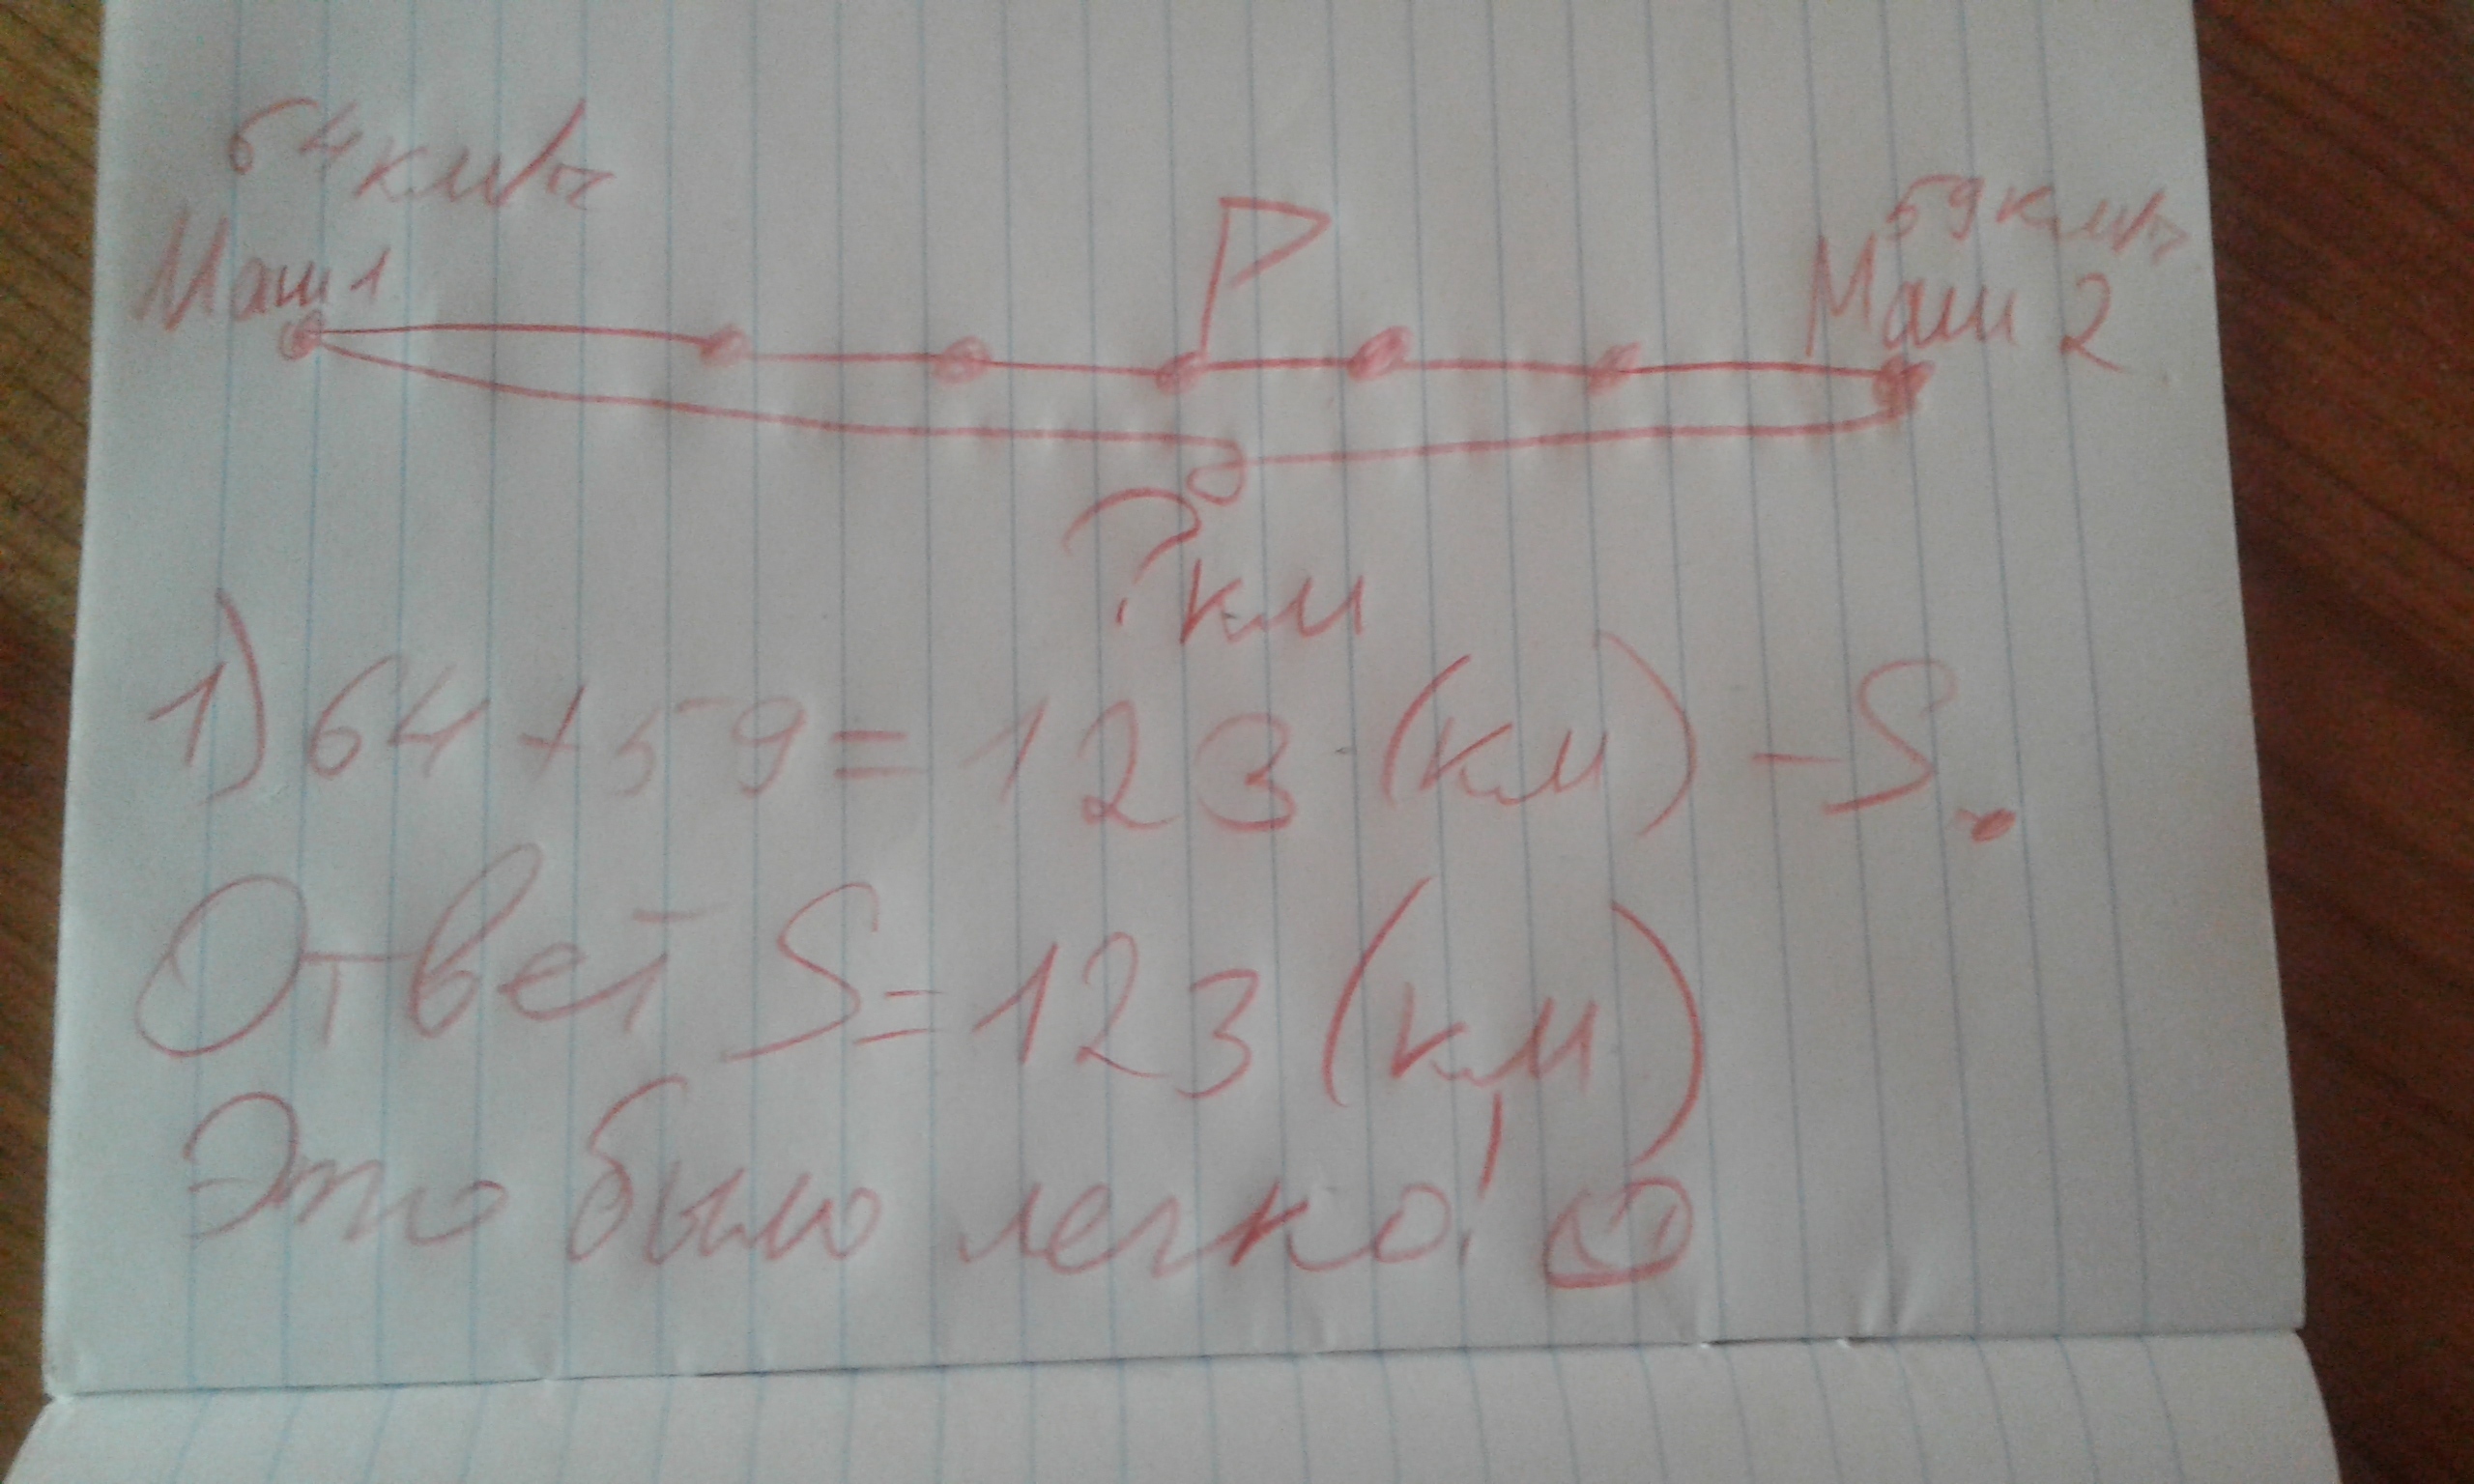 64 км/ч
59 км/ч
Маш 1
Маш 2
? км
1) 64 + 59 = 123 (км) - S.
Ответ S = 123 (км)
Это было легко!